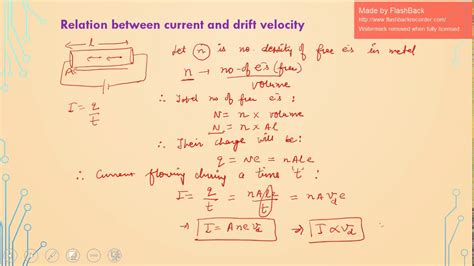 Relation between current and drift velocity
Made by FlashBack
http://www.flashbackrecorder.com/
Watermark removed when fully licensed
Let n is no. density of free e's in metal
l
A
n → no. of e's (free)
volume
I = q/t
∴ Total no of free e's :
N = n × volume
N = n × Al
∴ Their charge will be:
q = Ne = nAle
∴ Current flowing during a time 't' :
I = q/t = nAle/t = nAVde
→ I = AneVd ⇒ I ∝ Vd